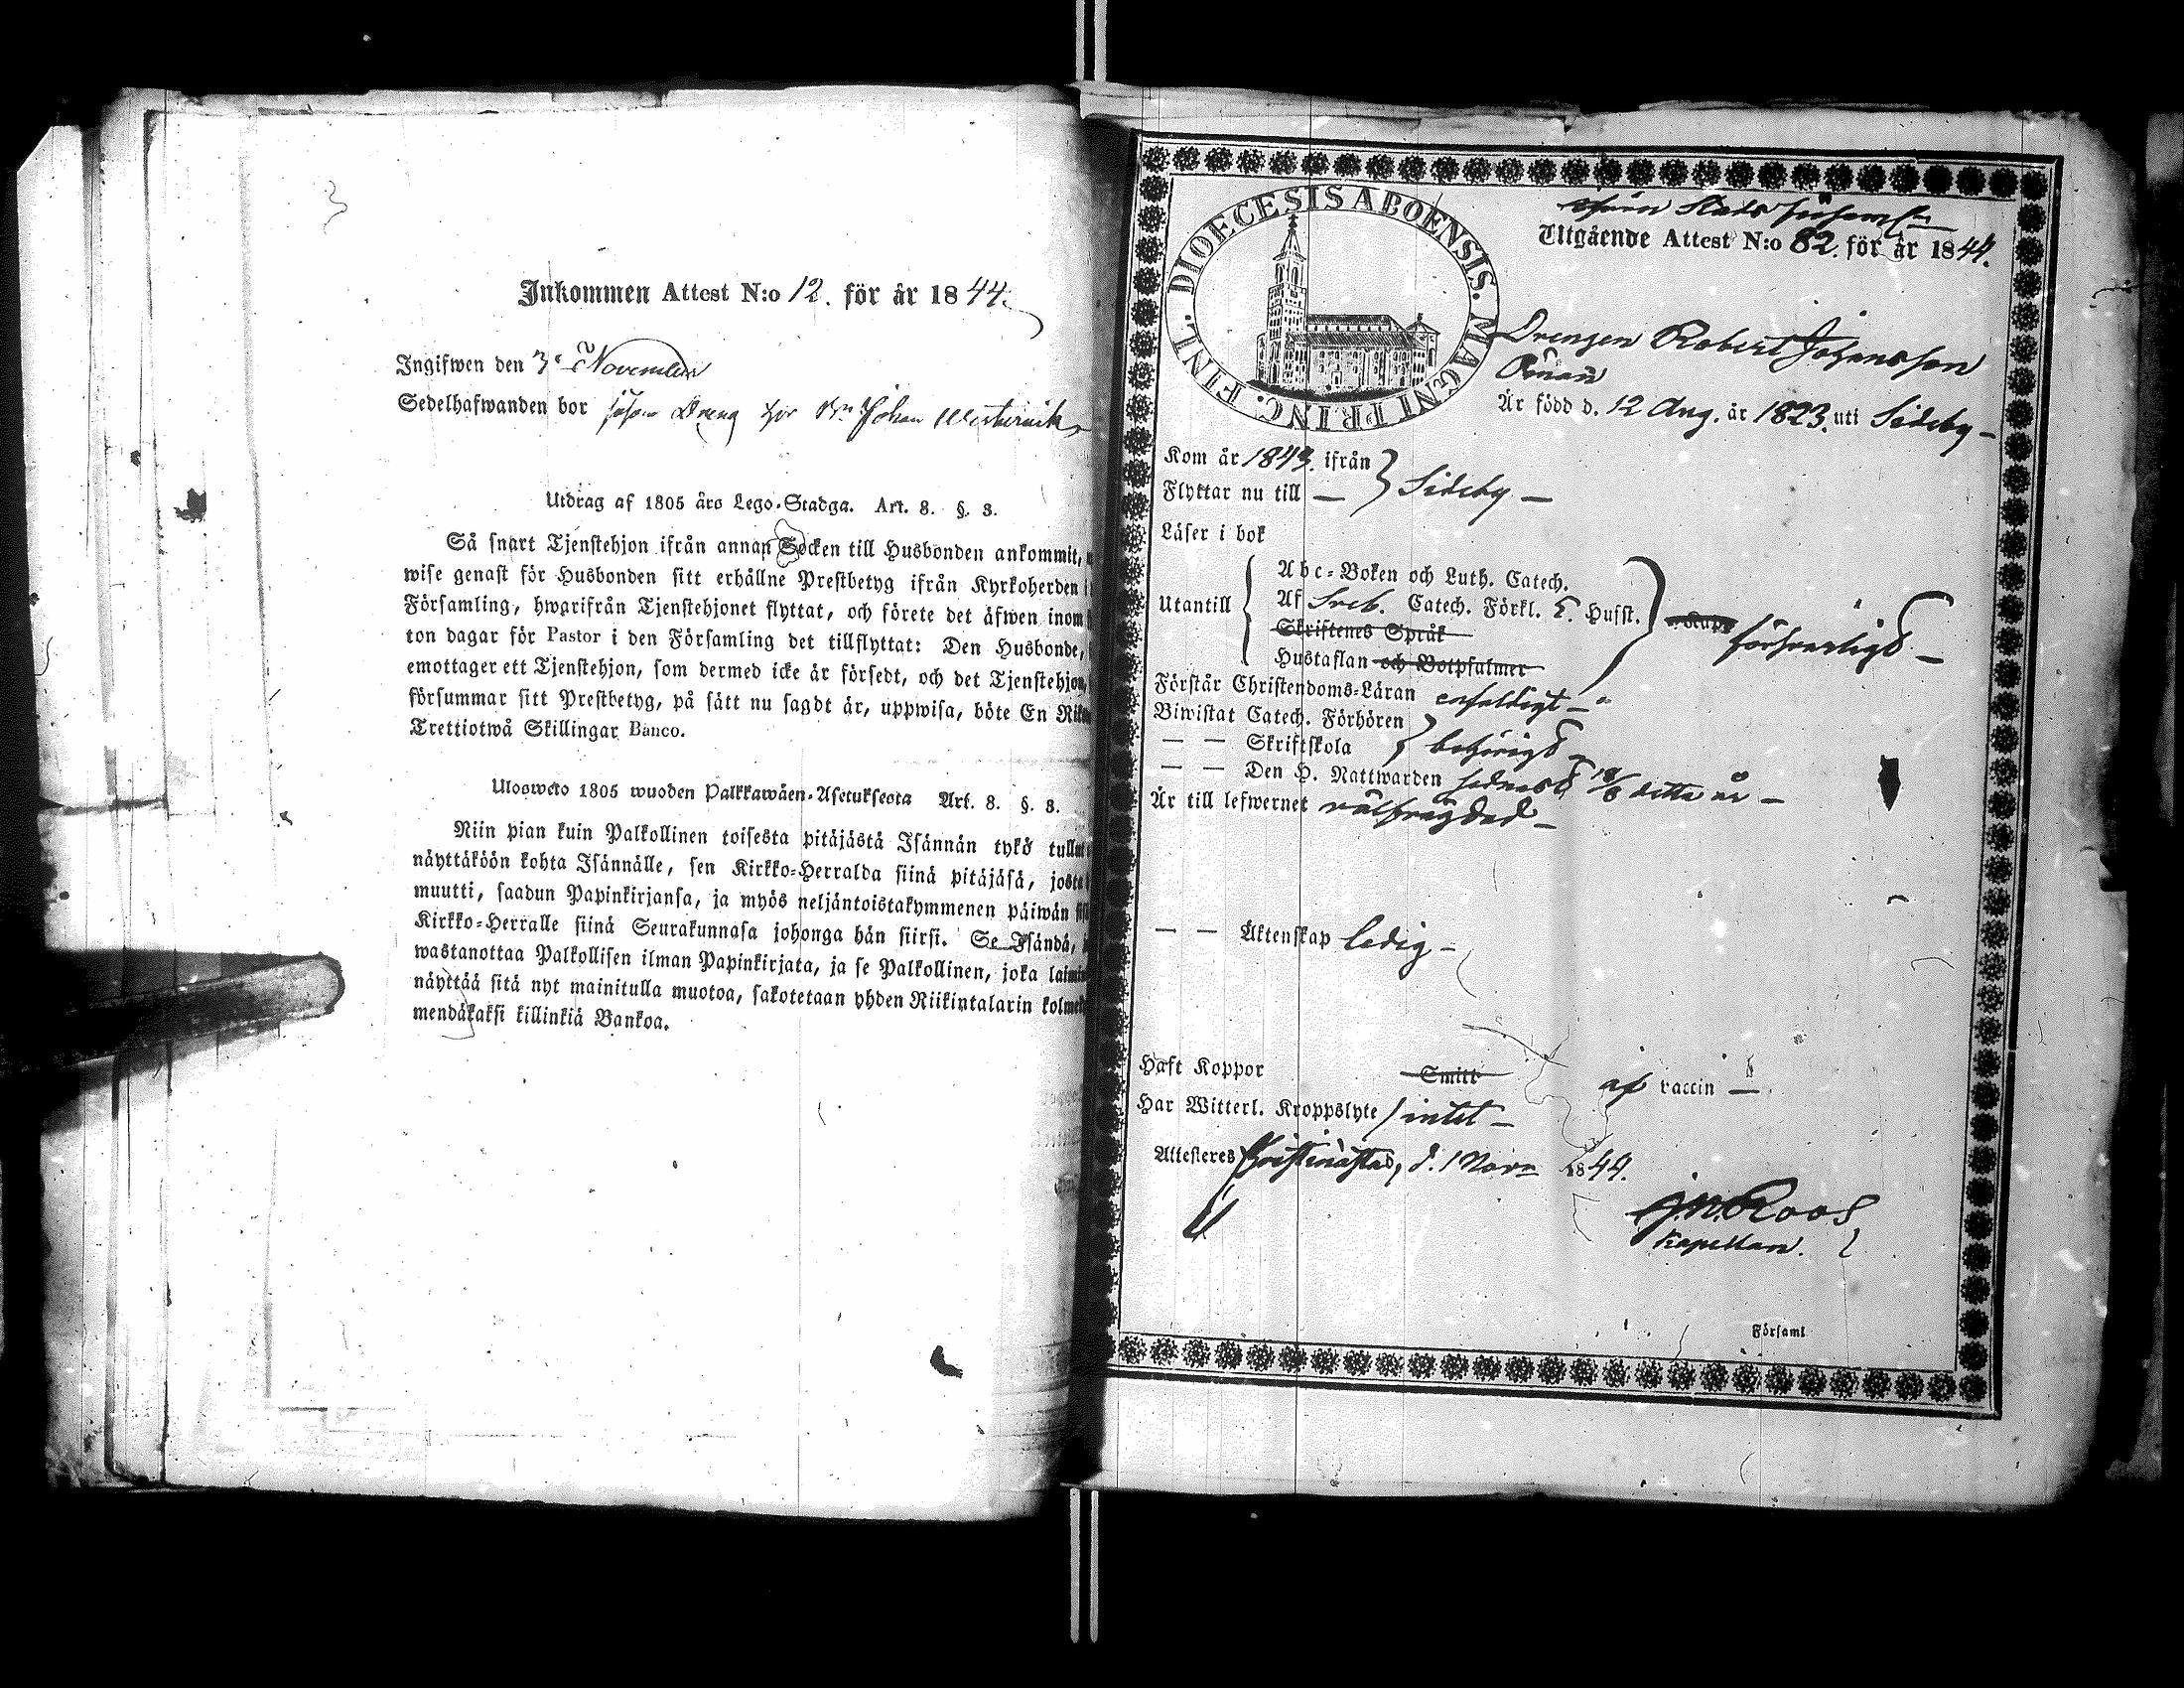 Inkommen Attest N:o 12. för år 1844.
Ingifwen den 3e November
Sedelhafwanden bor såsom Dreng hos Johan Westervik
Utdrag af 1805 års Lego-Stadga. Art. 8. §. 3.
Så snart Tjenstehjon ifrån annan Socken till Husbonden ankommit,
wise genast för Husbonden sitt erhållne Prestbetyg ifrån Kyrkoherden i
Församling, hwarifrån Tjenstehjonet flyttat, och förete det äfwen inom
ton dagar för Pastor i den Församling det tillflyttat: Den Husbonde,
emottager ett Tjenstehjon, som dermed icke är försedt, och det Tjenstehjon,
försummar sitt Prestbetyg, på sätt nu sagdt är, uppwisa, böte En Riks
Trettiotwå Skillingar Banco.
Ulosweto 1805 wuoden Palkkawäen-Asetuksesta Art. 8. §. 3.
Niin pian kuin Palkollinen toisesta pitäjästä Isännän tykö tullut
näyttäköön kohta Isännälle, sen Kirkko-Herralda siinä pitäjäsä, josta
muutti, saadun Papinkirjansa, ja myös neljäntoistakymmenen päiwän
Kirkko-Herralle siinä Seurakunnasa johonga hän siirsi. Se Isändä,
wastanottaa Palkollisen ilman Papinkirjata, ja se Palkollinen, joka laimin
näyttää sitä nyt mainitulla muotoa, sakotetaan yhden Riikintalarin kolme
mendäkaksi killinkiä Bankoa.
DIOECESIS ABOENSIS. MAGNI PRINC. FINL.
Utgående Attest N:o 82. för år 1844.
Drengen Robert Johansson
Är född d. 12 Aug. år 1823. uti Sideby
Kom år 1843. ifrån
Flyttar nu till } Sideby
Läser i bok
Utantill { Abc-Boken och Luth. Catech.
Af Sveb. Catech. Förkl. 5. Hufst.
Skriftenes Språk
Hustaflan och Botpsalmer
} försvarligt
Förstår Christendoms-Läran enfaldigt
Biwistat Catech. Förhören
— — Skriftskola } behörigt
— — Den H. Nattwarden sednast 18/8 detta år
Är till lefwernet välfrägdad
— — Äktenskap ledig
Haft Koppor Smitt af vaccin
Har Witterl. Kroppslyte intet
Attesteres Christinæstad, d. 1 Novr 1844.
J.N. Roos
Kapellan.
Församl.